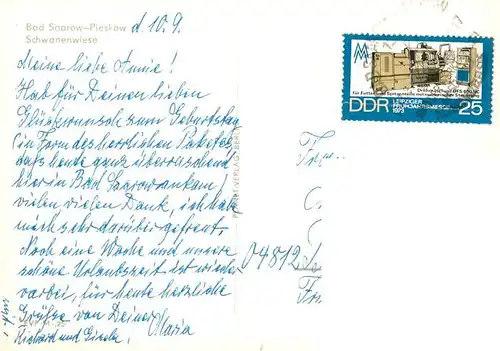 Bad Saarow-Pieskow
Schwanenwiese
d. 10. 9.
Meine liebe Annie!
Hab für Deinen lieben
Glückwunsch zum Geburtstag
in Form des herrlichen Paketes,
das heute ganz überraschend
hier in Bad Saarow ankam,
vielen vielen Dank, ich habe
mich sehr darüber gefreut.
Noch eine Woche und unsere
schöne Urlaubszeit ist wieder
vorbei, für heute herzliche
Grüße von Deiner
Maria
Richard und Gisela.
DDR LEIPZIGER FRÜHJAHRSMESSE 1973 25
04812